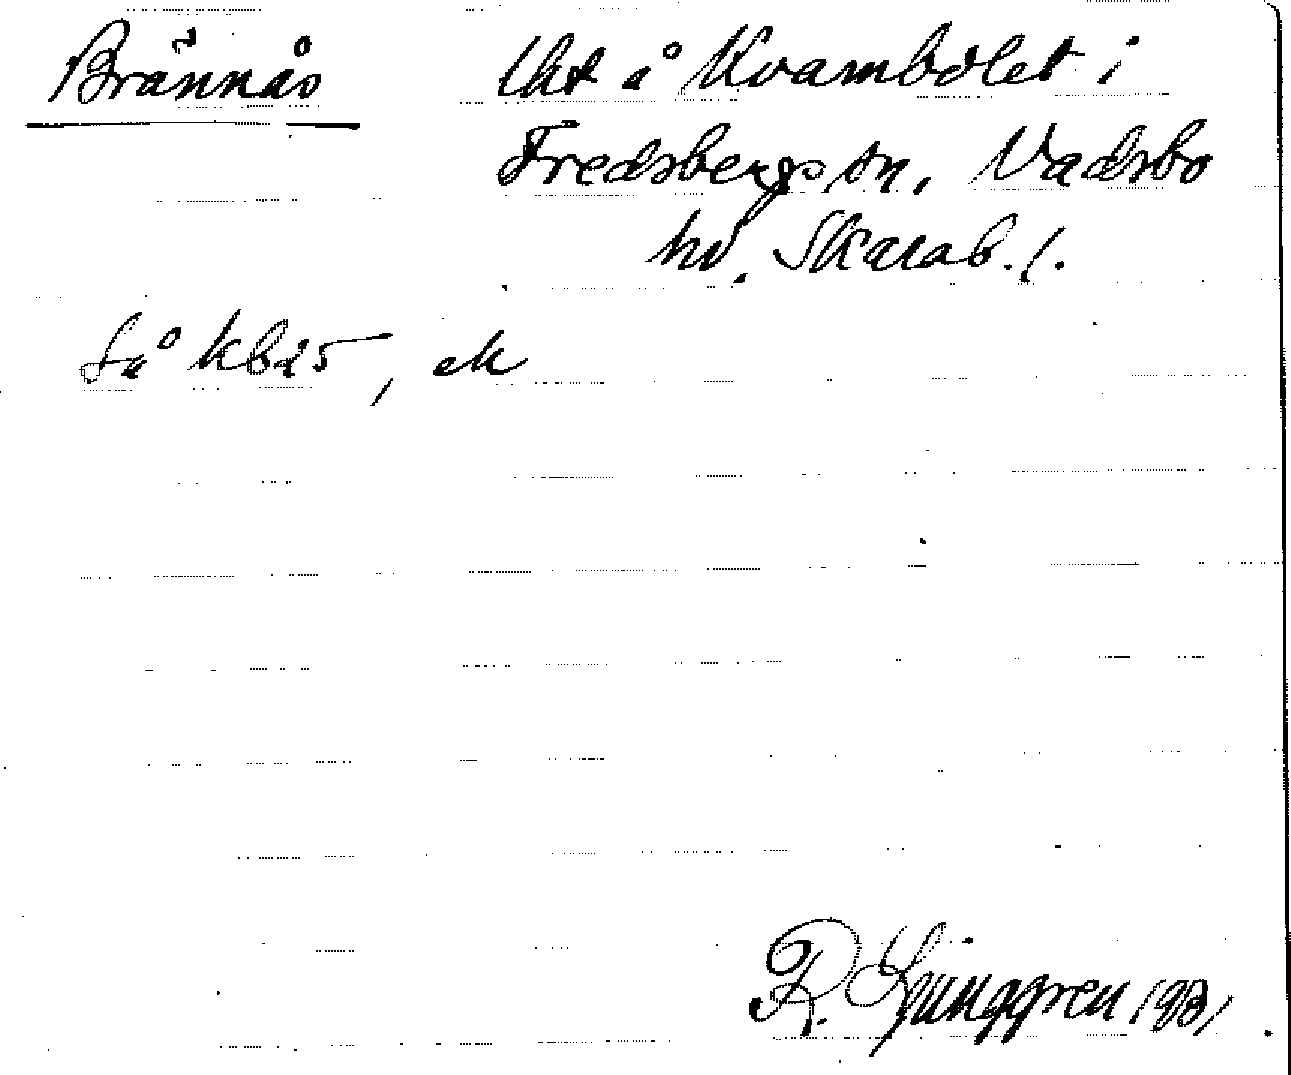 Brännås lht å Kvambolet i
Fredsbergs sn, Vadsbo
hd. Skarab. l.
Så kb25, ek
R. Ljunggren 1931